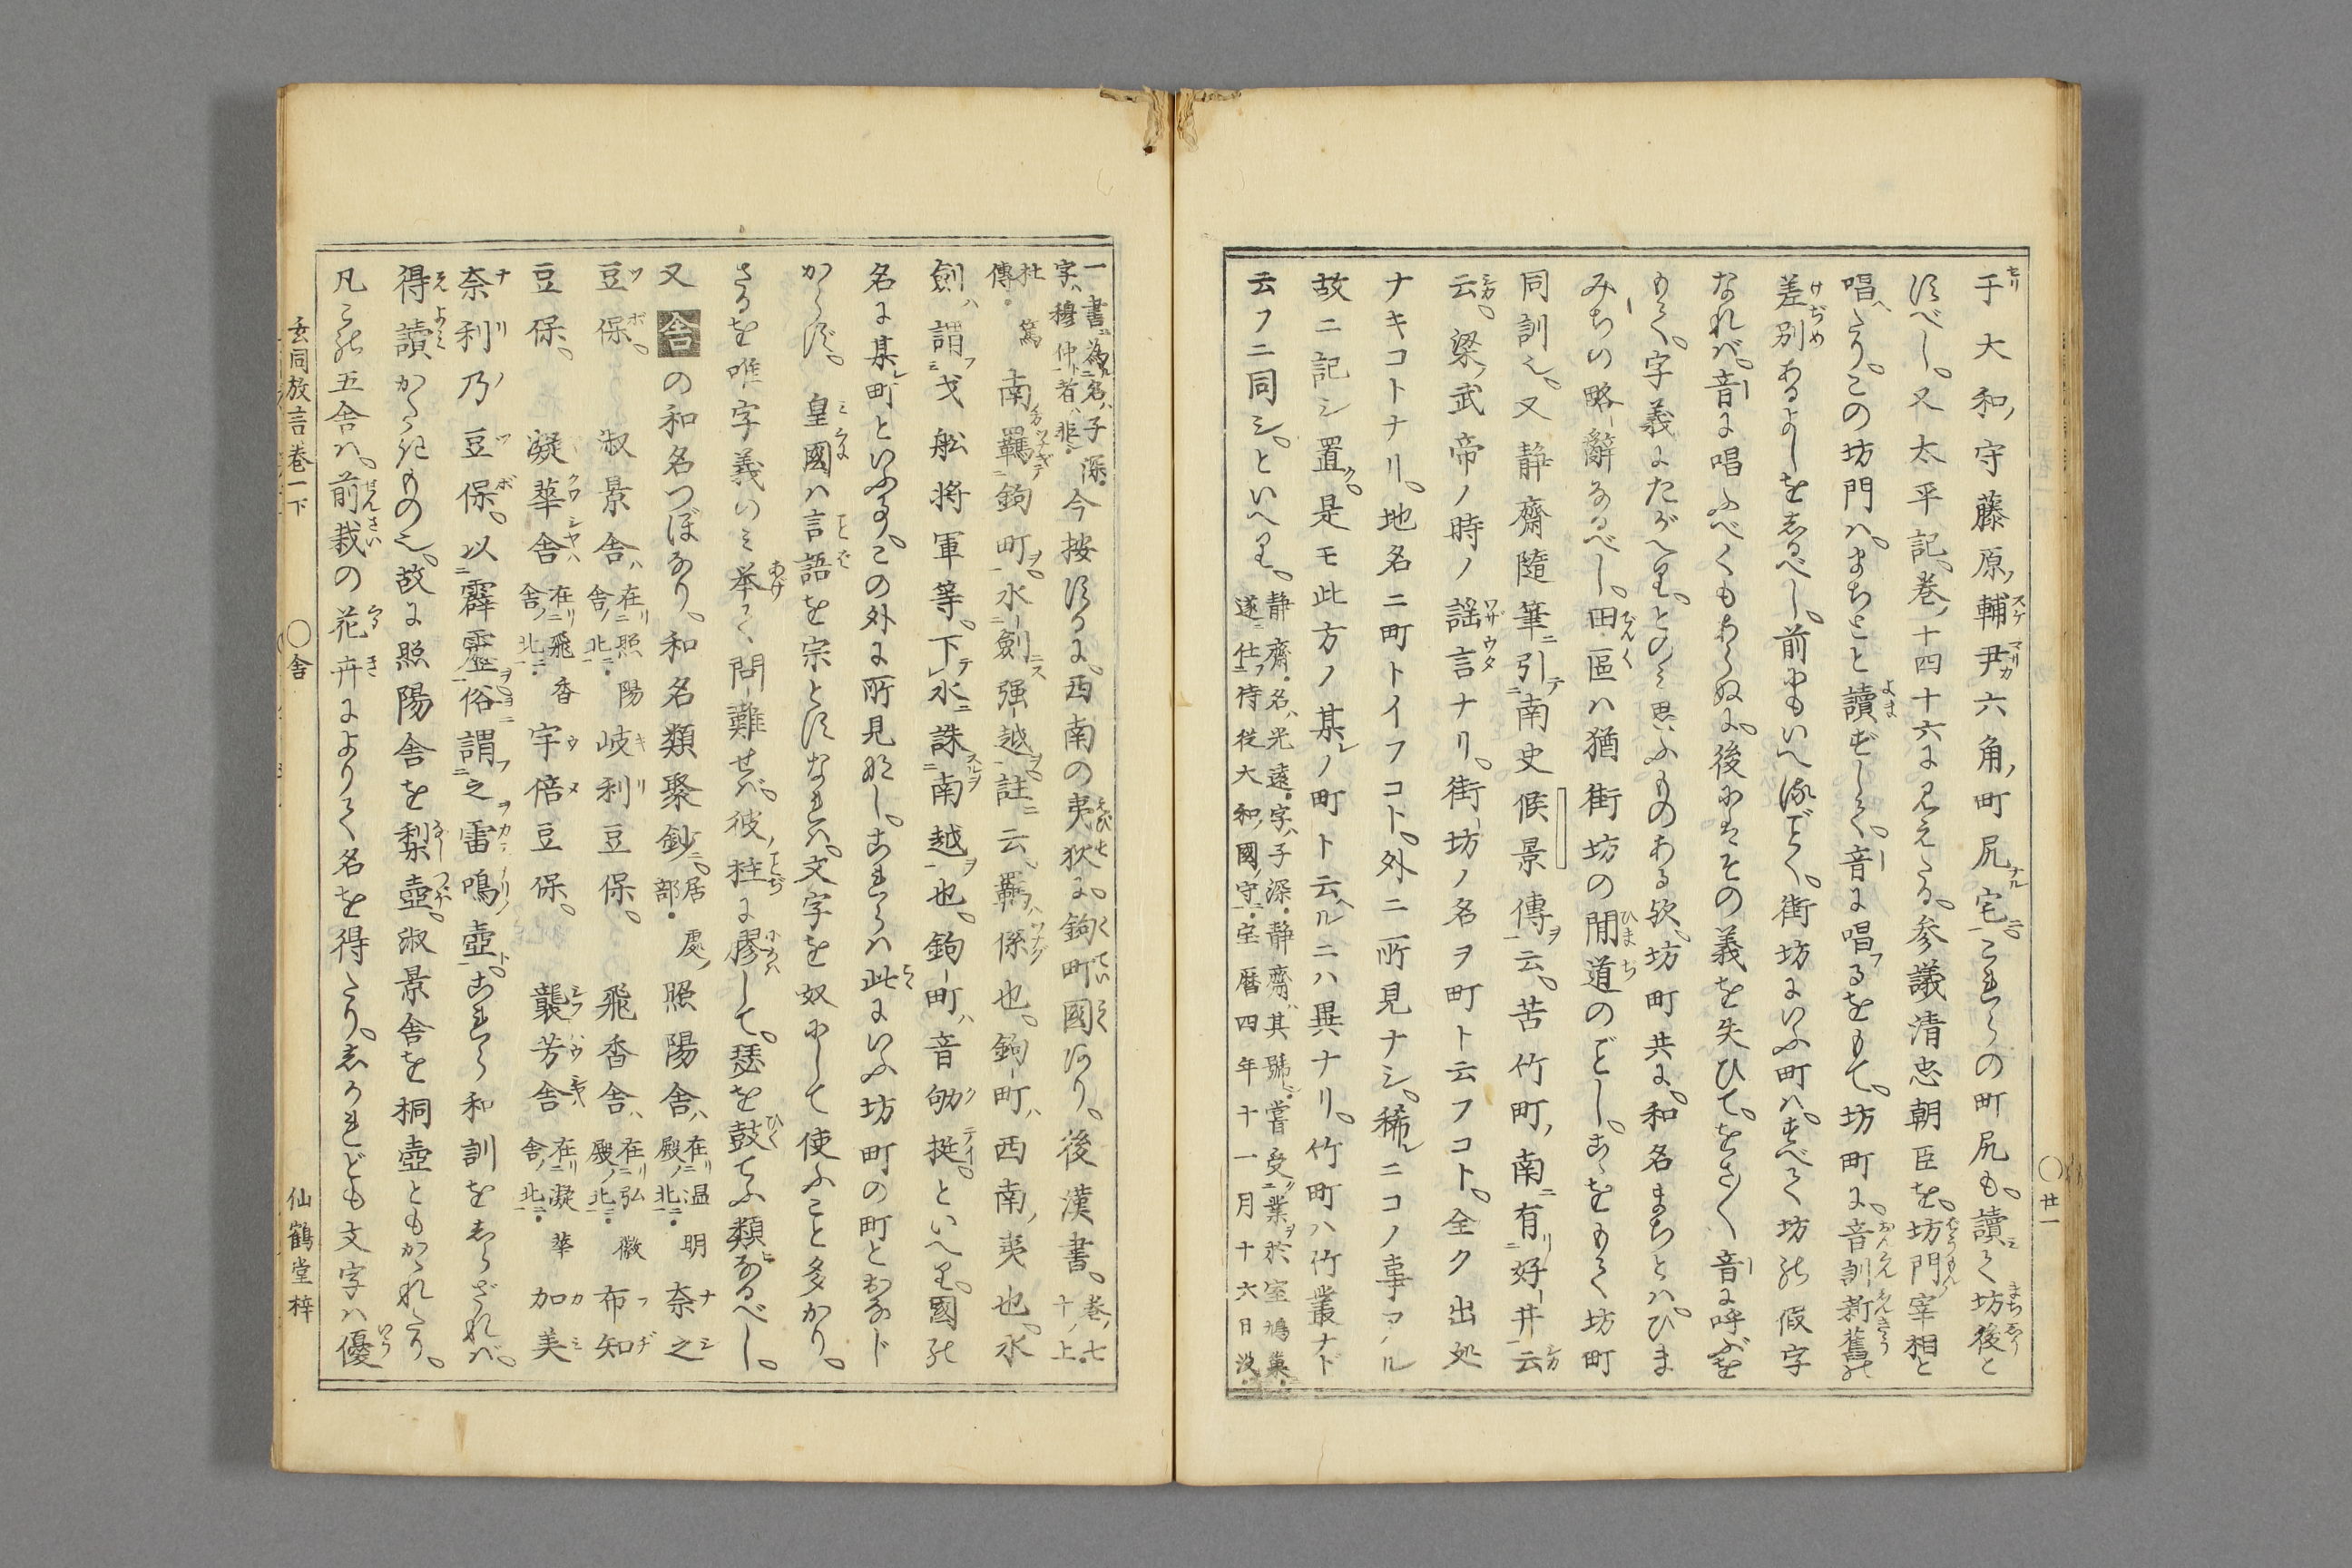 于大和守藤原輔尹六角町尻宅これらの町尻も讀て坊後と
すべし。又太平記巻十四十六に見えたる。参議清忠朝臣を。坊門宰相と
唱へたり。この坊門は。まちとと讀ずして。音に唱るをもて。坊町に。音訓新舊の
差別あるよしをしるべし。前にもいへるごとく。街坊にいふ町は。すべて坊の假字
なれば。音に唱ふべくもあらぬに。後にはその義を失ひて。をさ〱音に呼ぶを
もて。字義にたがへり。とのみ思ふものある歟。坊町共に。和名まちとは。ひま
みちの略辭なるべし。田區は猶街坊の間道のごとし。こをもて坊町
同訓也。又静齋隨筆ニ引テ南史候景傳ヲ云。苦竹町ノ南ニ有リ好井云
云。梁ノ武帝ノ時ノ謡言ナリ。街坊ノ名ヲ町ト云フコト。全ク出処
ナキコトナリ。地名ニ町トイフコト。外ニ所見ナシ。稀ルニコノ事アル
故ニ記シ置ク。是モ此方ノ某ノ町ト云ヘルニハ異ナリ。竹町ハ竹叢ナド
云フニ同シ。といへり。静齋。名ハ光遠。字ハ子深。静齋ハ其號。嘗受業ヲ於室鳩巣。
遂仕侍従大和國守。宝暦四年十一月十六日没。
一書為名ハ子深。
字ハ穆仲者ハ非。今按するに。西南の夷狄に。鉤町國あり。後漢書。巻ノ七十ノ上。
杜篤傳。南羈鉤町ヲ。水劍强越ヲ。註ニ云。羈ハ係也。鉤町ハ西南ノ夷也。水
劍ハ謂戈舩将軍等。下テ水ニ誅スルヲ南越ヲ也。鉤町ハ音劬挺。といへり。國の
名に某町といふあり。この外に所見なし。これらは此にいふ坊町の町とおなじ
からず。皇國は言語を宗とすなれば。文字を奴にして使ふこと多かり。
さるを唯字義のみ举て。問難せば。彼ノ柱に膠して。瑟を鼓てふ類なるべし。
又舎の和名つぼあり。和名類聚鈔ニ。居處部。照陽舎ハ在リ温明殿ノ北ニ。奈之
豆保。淑景舎ハ在リ照陽舎ノ北ニ。岐利豆保。飛香舎ハ在リ弘徽殿ノ北ニ。布知
豆保。凝華舎ハ在リ飛香舎ノ北ニ。宇倍豆保。襲芳舎在リ凝華舎ノ北ニ。加美
奈利乃豆保。以霹靂ヲ俗謂之雷鳴壺ト。これら和訓をしらざれば。
得讀がたきもの也。故に照陽舎を梨壺。淑景舎を桐壺ともかゝれたり。
凡この五舎は。前栽の花卉によりて名を得たり。しかれども文字は優
○廿一
玄同放言巻一下
○舎
仙鶴堂梓